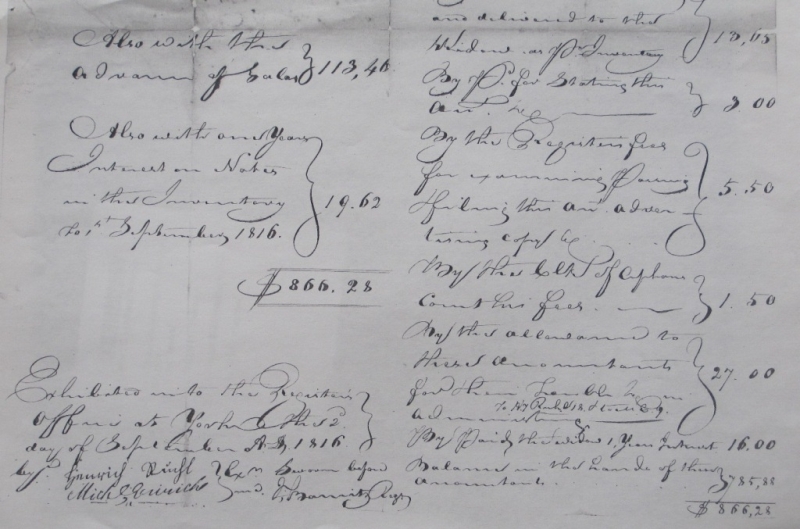 Also with the
advance of Sales 113,46
Also with one Years
Interest on Notes
in the Inventory 19.62
to 1st September 1816.
$866.28
Exhibited into the Registers
Office at York the 2d
day of September AD 1816
by Henrich Richt
Mich Emerich Exrs Sworn before
me.
and delivered to the
Widow as Pr Inventory 13,63
By Do. for Stating this
Act. &c 3.00
By the Registers fees
for examining Passing
filing this act. adver
tising copy &c. 5.50
By the Clk of Orphans
Court his fees. 1.50
By the allowance to
these Accountants
for their trouble &c in 27.00
administering
By Paid the Widow 1 Year Interest 16.00
Balance in the hands of these
Accountants. 785,88
$866,28